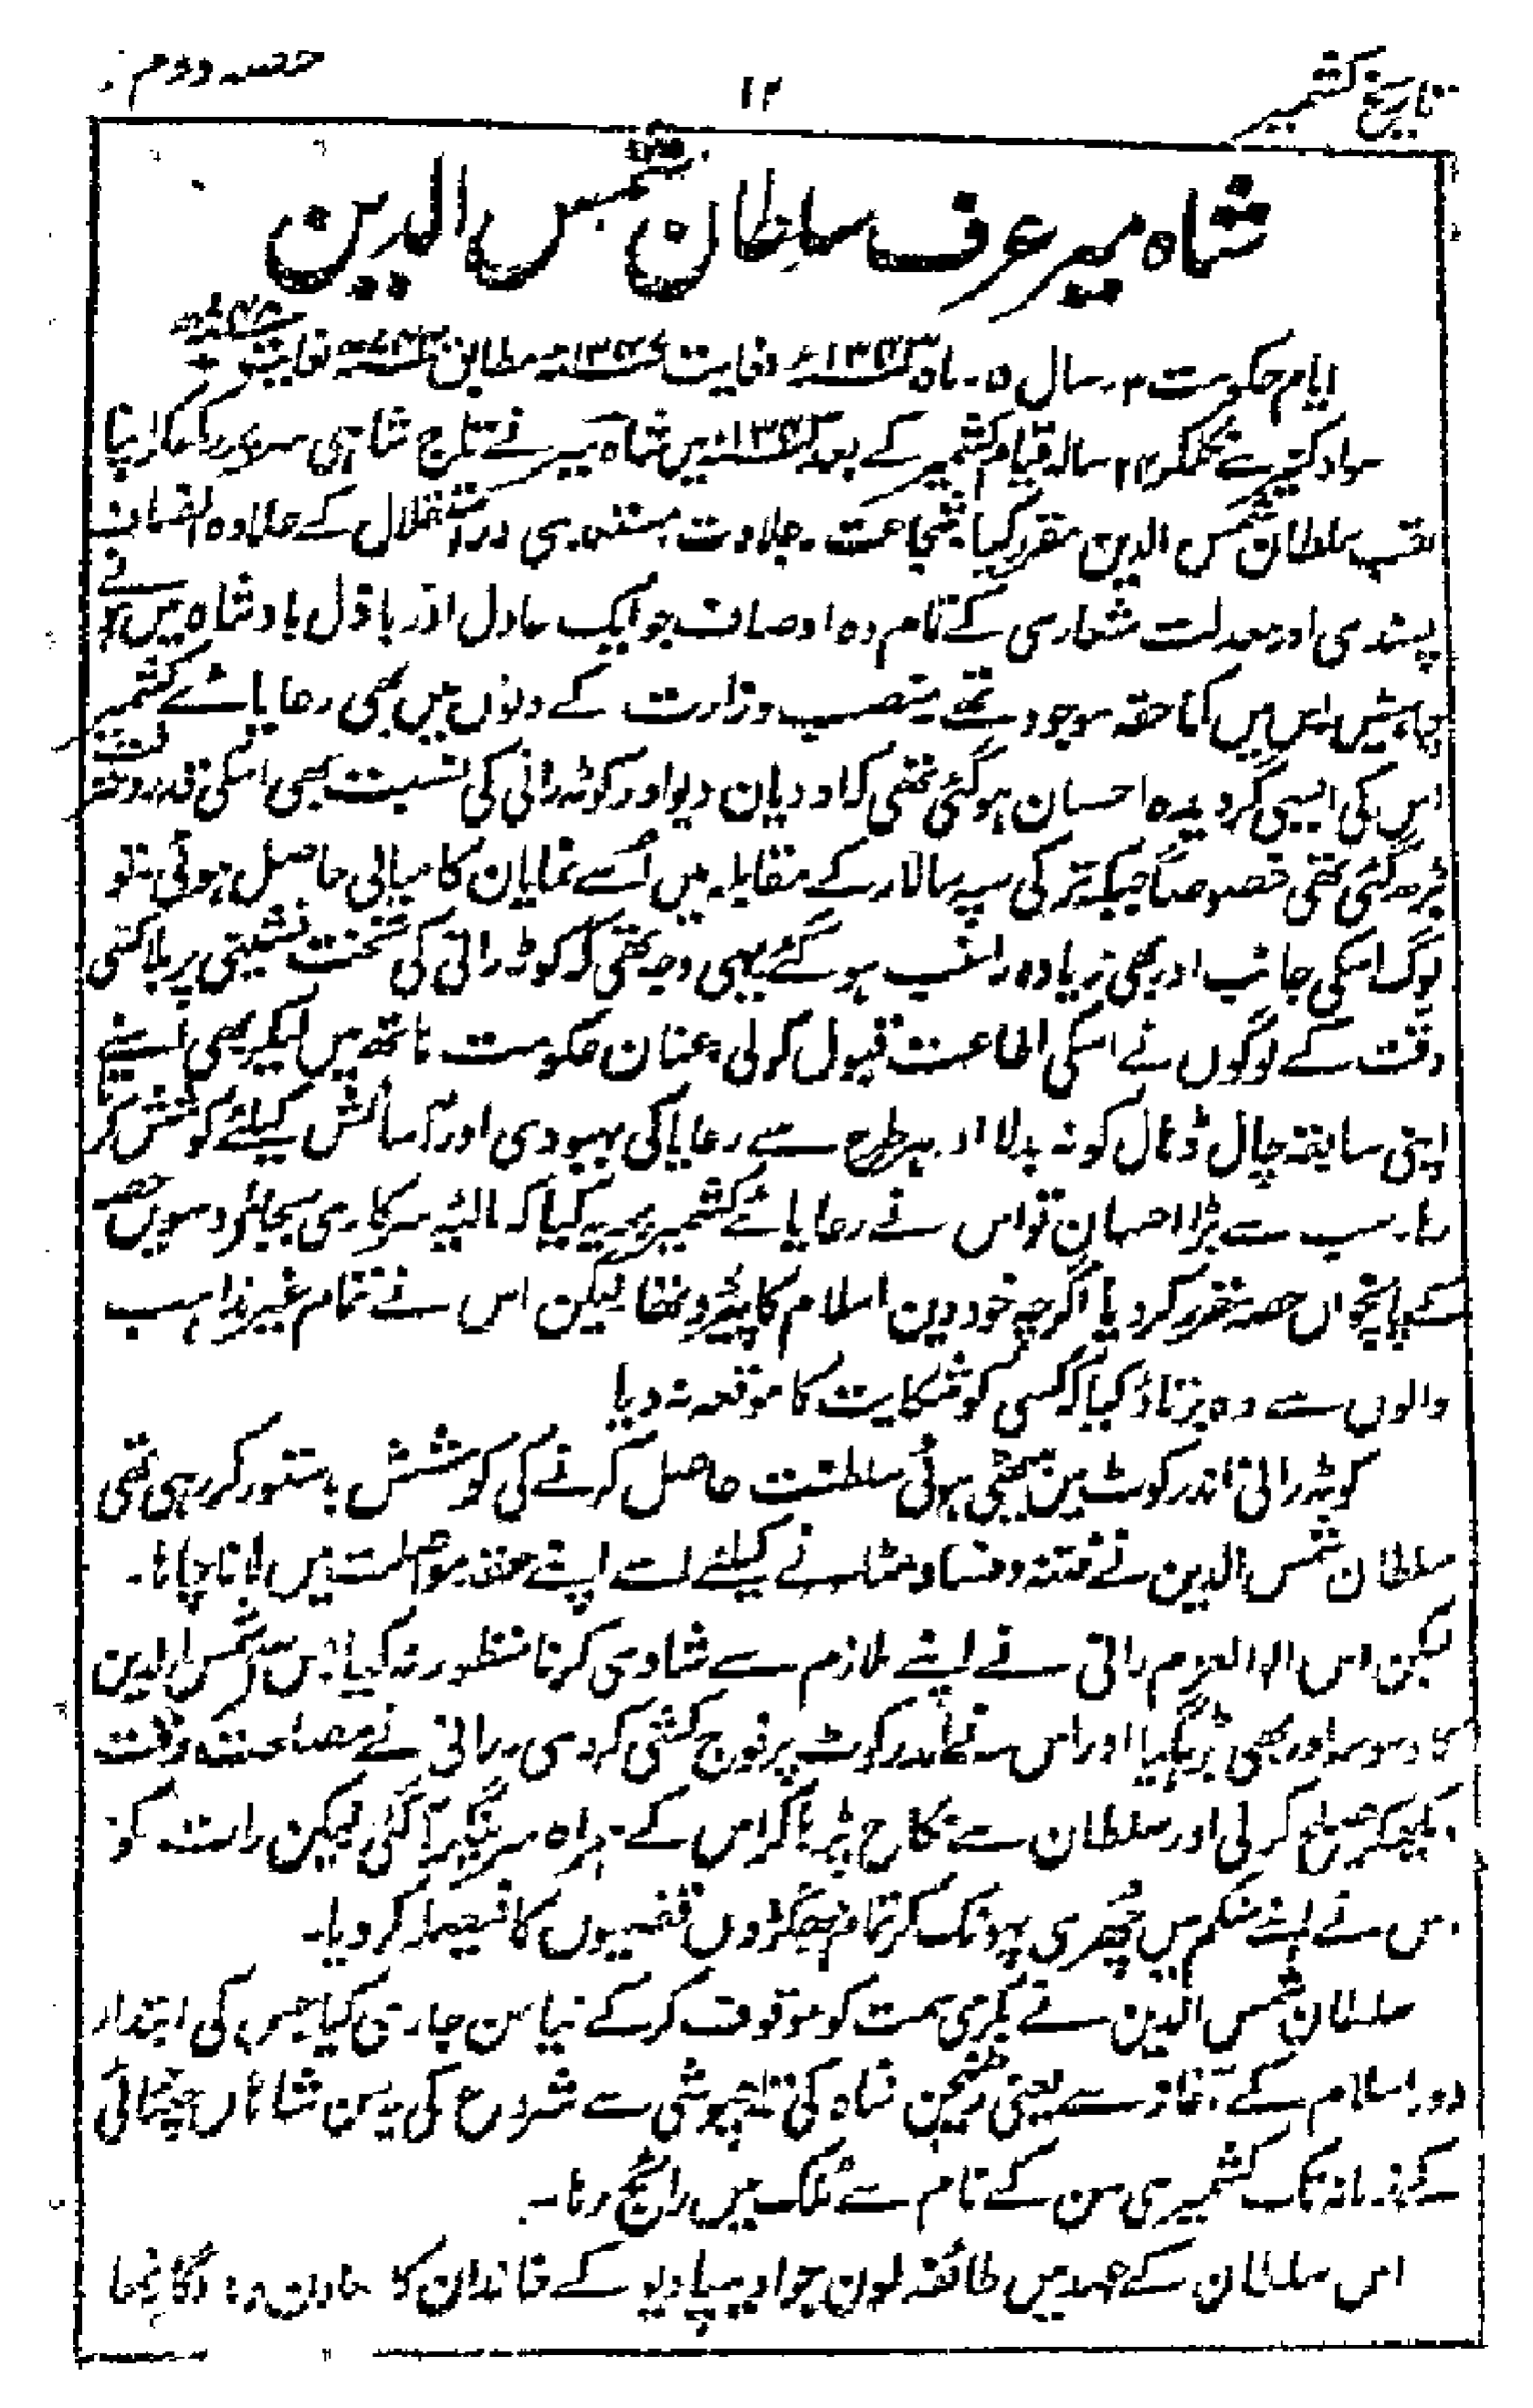 تاریخ کشمیر
۱۲
حصہ دوم
شاہ میر عرف سلطان شمس الدین
ایام حکومت ۳ سال ۵ ماہ ۱۳۴۳ء لغایت مطابق لغایت
سواد کبیر سے نکلکر سالہ قیام کشمیر کے بعد میں شاہ میر نے تاج شاہی سر پر رکھکر اپنا
لقب سلطان شمس الدین مقرر کیا شجاعت۔ جلاوت مستعدی اور استقلال کے علاوہ انصاف
پسندی اور معدلت شعاری کے تمام وہ اوصاف جو ایک عادل اور باذل بادشاہ میں ہونے
چاہئیں اس میں کما حقہ موجود تھے منصب وزارت کے دنوں میں بھی رعایائے کشمیر
اس کی ایسی گرویدہ احسان ہو گئی تھی کہ اودیان دیو اور کوٹہ رانی کی نسبت بھی اسکی قدر و منزلت
بڑھ گئی تھی خصوصاً جبکہ ترکی سپہ سالار کے مقابلہ میں اُسے نمایان کامیابی حاصل ہوئی۔ تو
لوگ اسکی جانب اور بھی زیادہ راغب ہو گئے یہی وجہ تھی کہ کوٹہ رانی کی تخت نشینی پر بلا کسی
دقت کے لوگوں نے اسکی اطاعت قبول کرلی عنان حکومت ہاتھ میں لیکر بھی اسنے
اپنی سابقہ چال ڈھال کو نہ بدلا اور ہر طرح سے رعایا کی بہبودی اور آسائش کیلئے کوشش کرتا
رہا۔ سب سے بڑا احسان تو اس نے رعایائے کشمیر پر یہ کیا کہ مالیہ سرکاری بجائے دسویں حصہ
کے پانچواں حصہ مقرر کر دیا اگرچہ خود دین اسلام کا پیرو تھا۔ لیکن اس نے تمام غیر مذاہب
والوں سے وہ برتاؤ کیا کہ کسی کو شکایت کا موقعہ نہ دیا
کوٹہ رانی اندر کوٹ میں بیٹھی ہوئی سلطنت حاصل کرنے کی کوشش بدستور کر رہی تھی
سلطان شمس الدین نے فتنہ و فساد مٹانے کیلئے اسے اپنے عقد مواصلت میں لانا چاہا۔
لیکن اس اولو العزم رانی نے اپنے ملازم سے شادی کرنا منظور نہ کیا۔ اس پر شمس الدین
کا وسوسہ اور بھی بڑھ گیا اور اس نے اندر کوٹ پر فوج کشی کر دی۔ رانی نے مصلحت وقت
دیکھکر صلح کرلی اور سلطان سے نکاح پڑہا کر اس کے ہمراہ سرینگر آ گئی لیکن رات کو
اس نے اپنے شکم میں چھُری بھونک کر تمام جھگڑوں قضیوں کا فیصلہ کر دیا۔
سلطان شمس الدین نے بکرمی سمت کو موقوف کر کے نیا سن جاری کیا جس کی ابتدا
دور اسلام کے آغاز سے یعنی رنچن شاہ کی تاجپوشی سے شروع کی یہ سن شاہان چغتائی
کے زمانہ تک کشمیری سن کے نام سے مُلک میں رائج رہا۔
اس سلطان کے عہد میں طائفہ لون جو اودیپا دیو کے خاندان کا